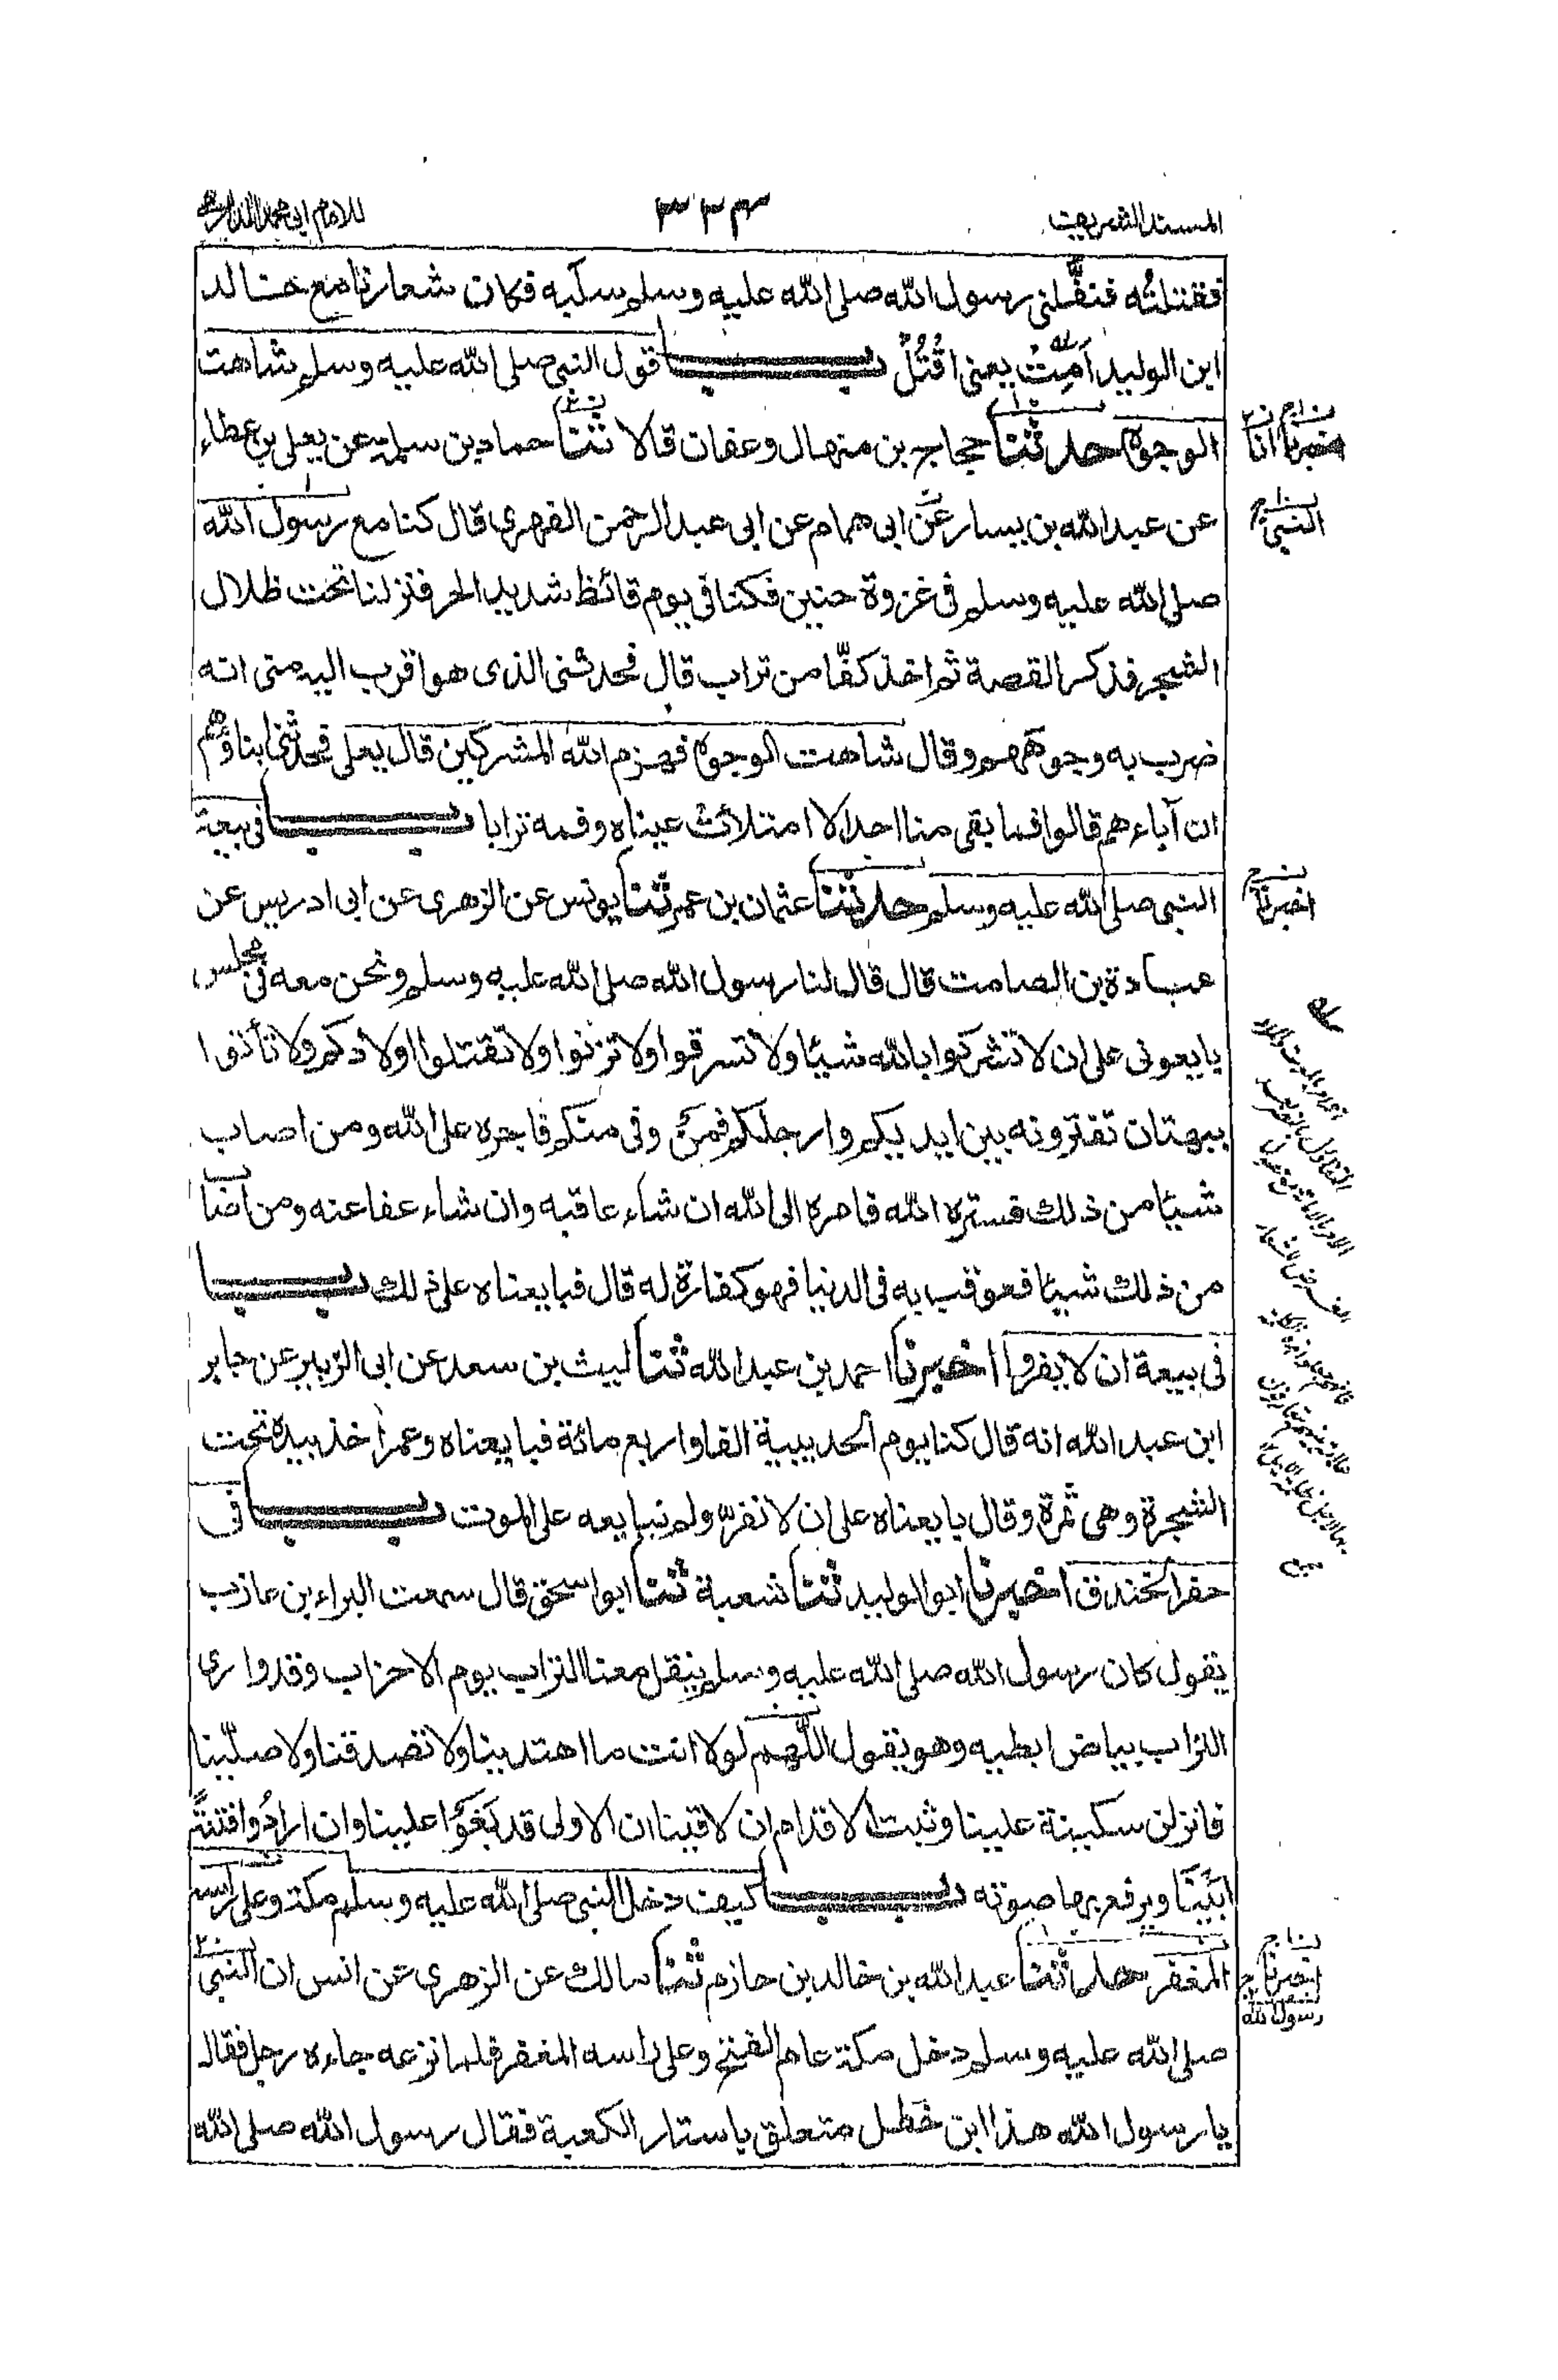 المسند الشريف
٣٢٣
للامام ابى محمد الدارمى
فقتلتُه فنفَّلنى رسول الله صلى الله عليه وسلم سلَبه فكان شعارنا مع خالد
ابن الوليد اَمِتْ يعنى اُقْتُلْ باب قول النبى صلى الله عليه وسلم شاهت
الوجوه حدثنا حجاج بن منهال وعفان قالا ثنا حماد بن سلمة عن يعلى بن عطاء
عن عبد الله بن يسار عن ابى همام عن ابى عبد الرحمن الفهرى قال كنا مع رسول الله
صلى الله عليه وسلم فى غزوة حنين فكنا فى يوم قائظ شديد الحر فنزلنا تحت ظلال
الشجر فذكر القصة ثم اخذ كفّا من تراب قال فحدثنى الذى هو اقرب اليه منى انه
ضرب به وجوههم وقال شاهت الوجوه فهزم الله المشركين قال يعلى فحدثنى ابناؤهم
ان آباءهم قالوا فما بقى منا احد الا امتلأت عيناه وفمه ترابا باب فى بيعة
النبى صلى الله عليه وسلم حدثنا عثمان بن عمر ثنا يونس عن الزهرى عن ابى ادريس عن
عبادة بن الصامت قال قال لنا رسول الله صلى الله عليه وسلم ونحن معه فى مجلس
بايعونى على ان لا تشركوا بالله شيئا ولا تسرقوا ولا تزنوا ولا تقتلوا اولادكم ولا تأتوا
ببهتان تفترونه بين ايديكم وارجلكم فمن وفى منكم فاجره على الله ومن اصاب
شيئا من ذلك فستره الله فامره الى الله ان شاء عاقبه وان شاء عفا عنه ومن اصاب
من ذلك شيئا فعوقب به فى الدنيا فهو كفارة له قال فبايعناه على ذلك باب
فى بيعة ان لا يفروا اخبرنا احمد بن عبد الله ثنا ليث بن سعد عن ابى الزبير عن جابر
ابن عبد الله انه قال كنا يوم الحديبية الفا واربع مائة فبايعناه وعمر اخذ بيده تحت
الشجرة وهى ثمرة وقال بايعناه على ان لا نفرّ ولم نبايعه على الموت باب فى
حفر الخندق اخبرنا ابو الوليد ثنا شعبة ثنا ابو اسحق قال سمعت البراء بن عازب
يقول كان رسول الله صلى الله عليه وسلم ينقل معنا التراب يوم الاحزاب وقد وارى
التراب بياض ابطيه وهو يقول اللّهم لولا انت ما اهتدينا ولا تصدقنا ولا صلّينا
فانزلن سكينة علينا وثبت الاقدام ان لاقينا ان الاولى قد بَغَوْا علينا وان ارادُوا فتنةً
اَبَيْنَا ويرفع بها صوته باب كيف دخل النبى صلى الله عليه وسلم مكة وعلى راسه
المغفر حدثنا عبد الله بن خالد بن حازم ثنا مالك عن الزهرى عن انس ان النبى
صلى الله عليه وسلم دخل مكة عام الفتح وعلى راسه المغفر فلما نزعه جاءه رجل فقال
يا رسول الله هذا ابن خطل متعلق باستار الكعبة فقال رسول الله صلى الله
اخبرنا انا
النبى
اخبرنا
اخبرنا
رسول الله